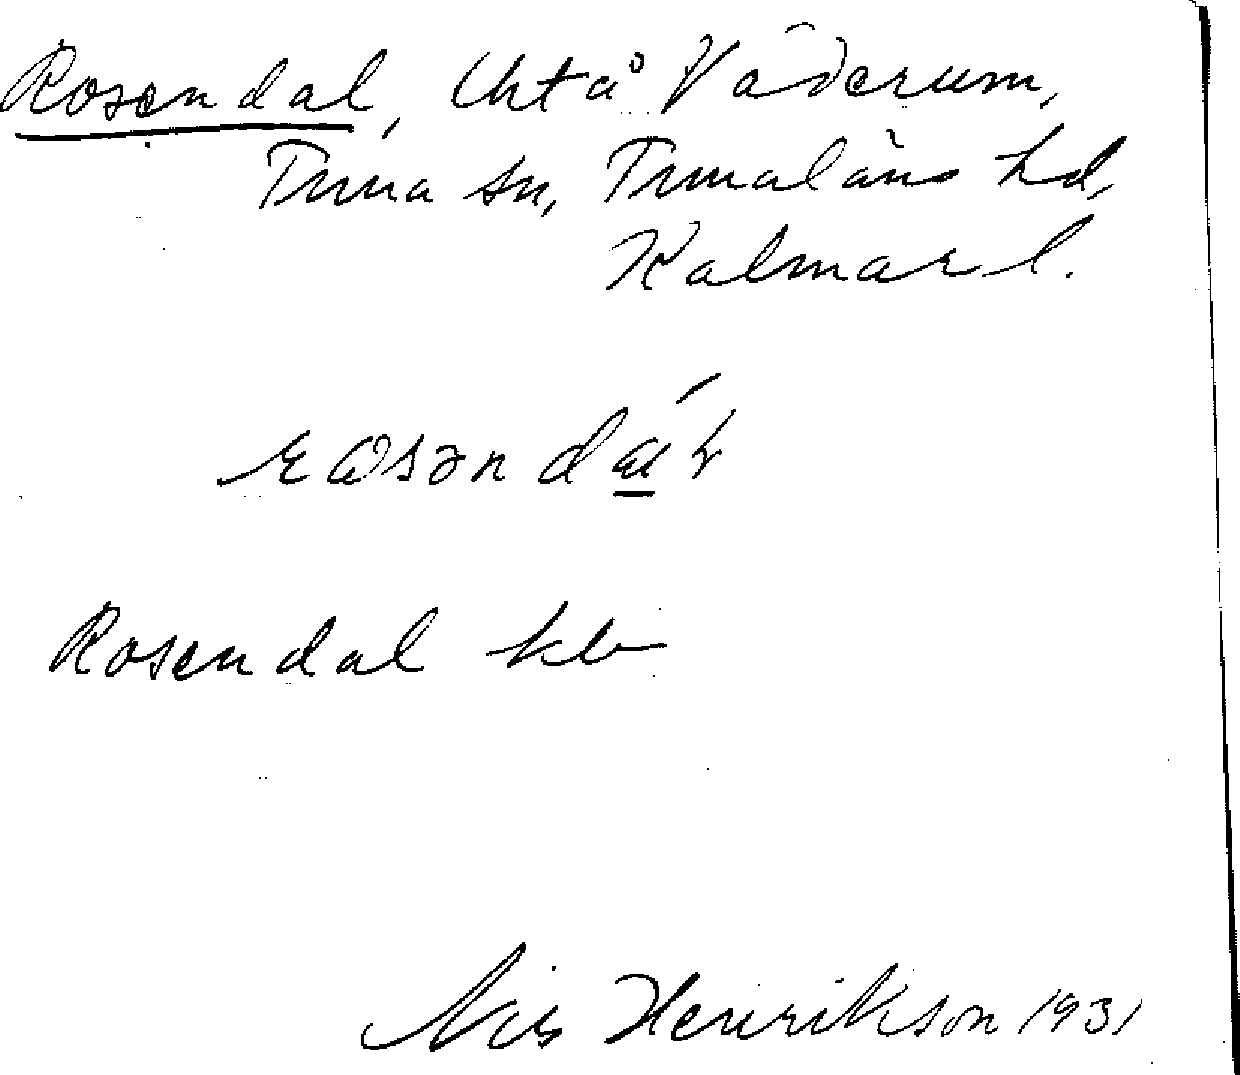 Rosendal, Uhtå Väderum,
Tuna sn, Tunaläns hd,
Kalmar l.
Rosendal
Nils Henrikson 1931